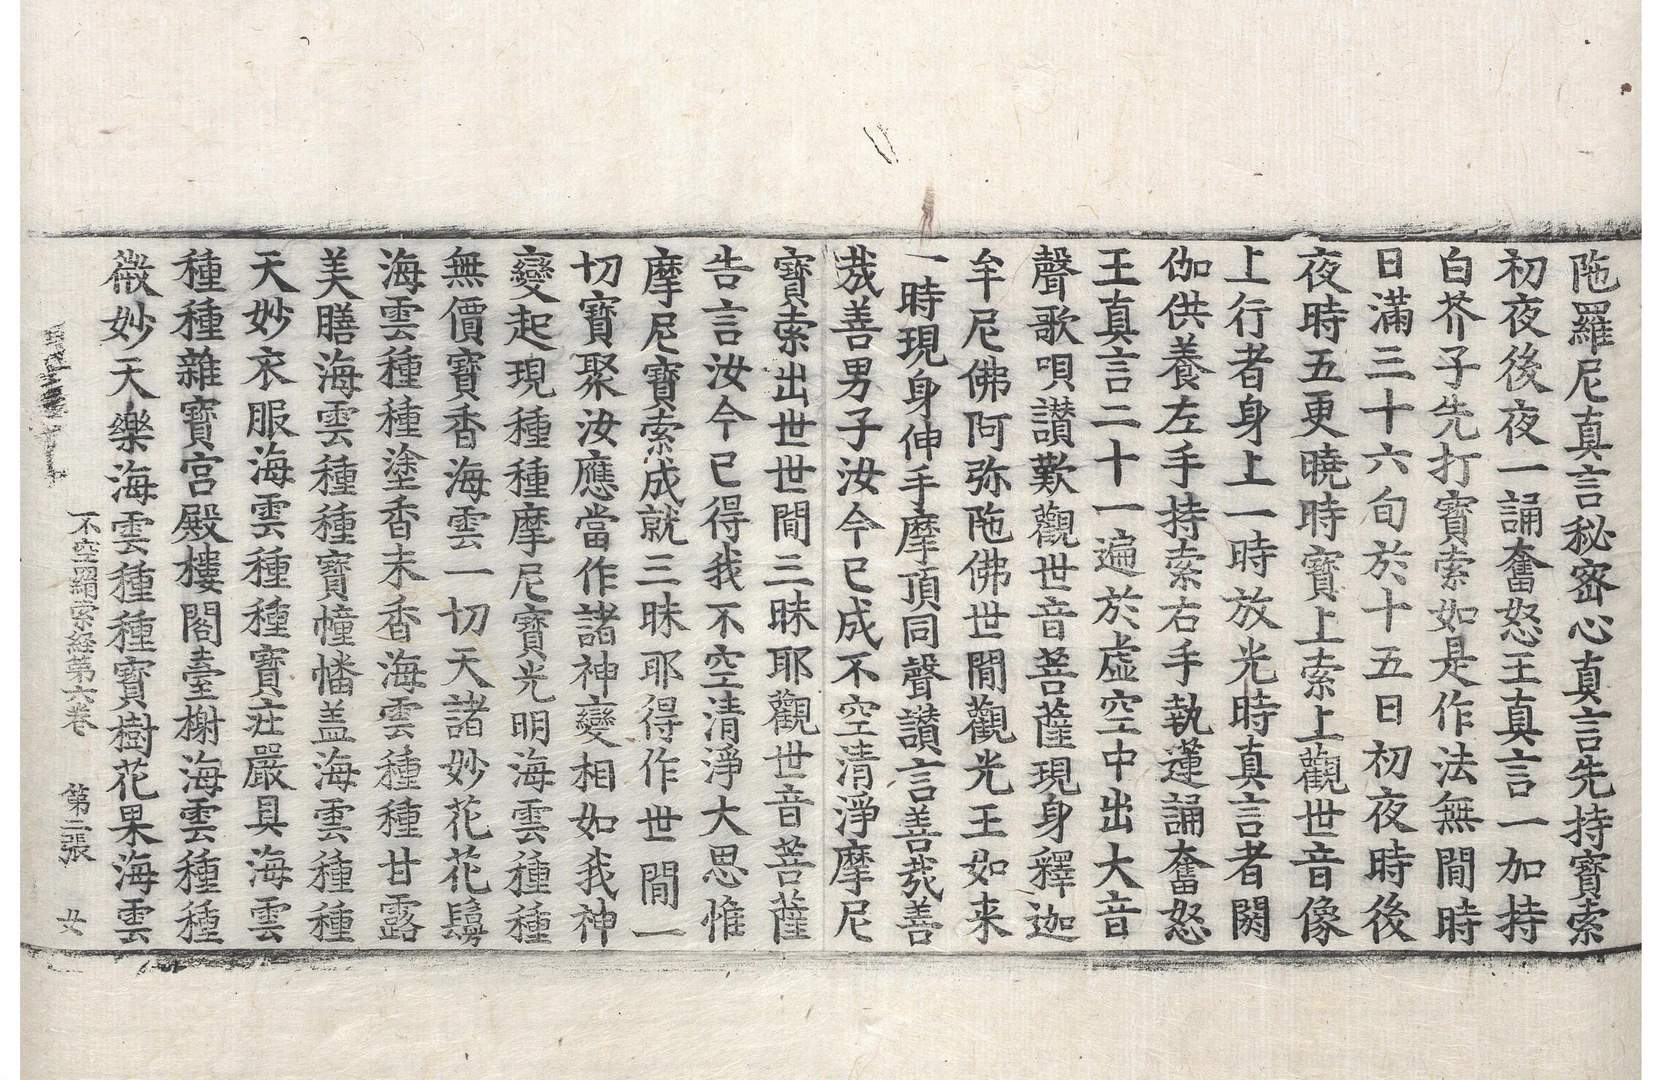 陁羅尼真言秘密心真言先持寶索
初夜後夜一誦奮怒王真言一加持
白芥子先打寶索如是作法無間時
日滿三十六旬於十五日初夜時後
夜時五更曉時寶上索上觀世音像
上行者身上一時放光時真言者閼
伽供養左手持索右手執蓮誦奮怒
王真言二十一遍於虛空中出大音
聲歌唄讃歎觀世音菩薩現身釋迦
牟尼佛阿弥陁佛世間觀光王如来
一時現身伸手摩頂同聲讃言善哉善
哉善男子汝今已成不空清淨摩尼
寶索出世世間三昧耶觀世音菩薩
告言汝今已得我不空清淨大思惟
摩尼寶索成就三昧耶得作世間一
切寶聚汝應當作諸神變相如我神
變起現種種摩尼寶光明海雲種種
無價寶香海雲一切天諸妙花花鬘
海雲種種塗香末香海雲種種甘露
美膳海雲種種寶幢幡盖海雲種種
天妙衣服海雲種種寶莊嚴具海雲
種種雜寶宮殿樓閣臺榭海雲種種
微妙天樂海雲種種寶樹花果海雲
不空罥索経第六卷 第二張 女